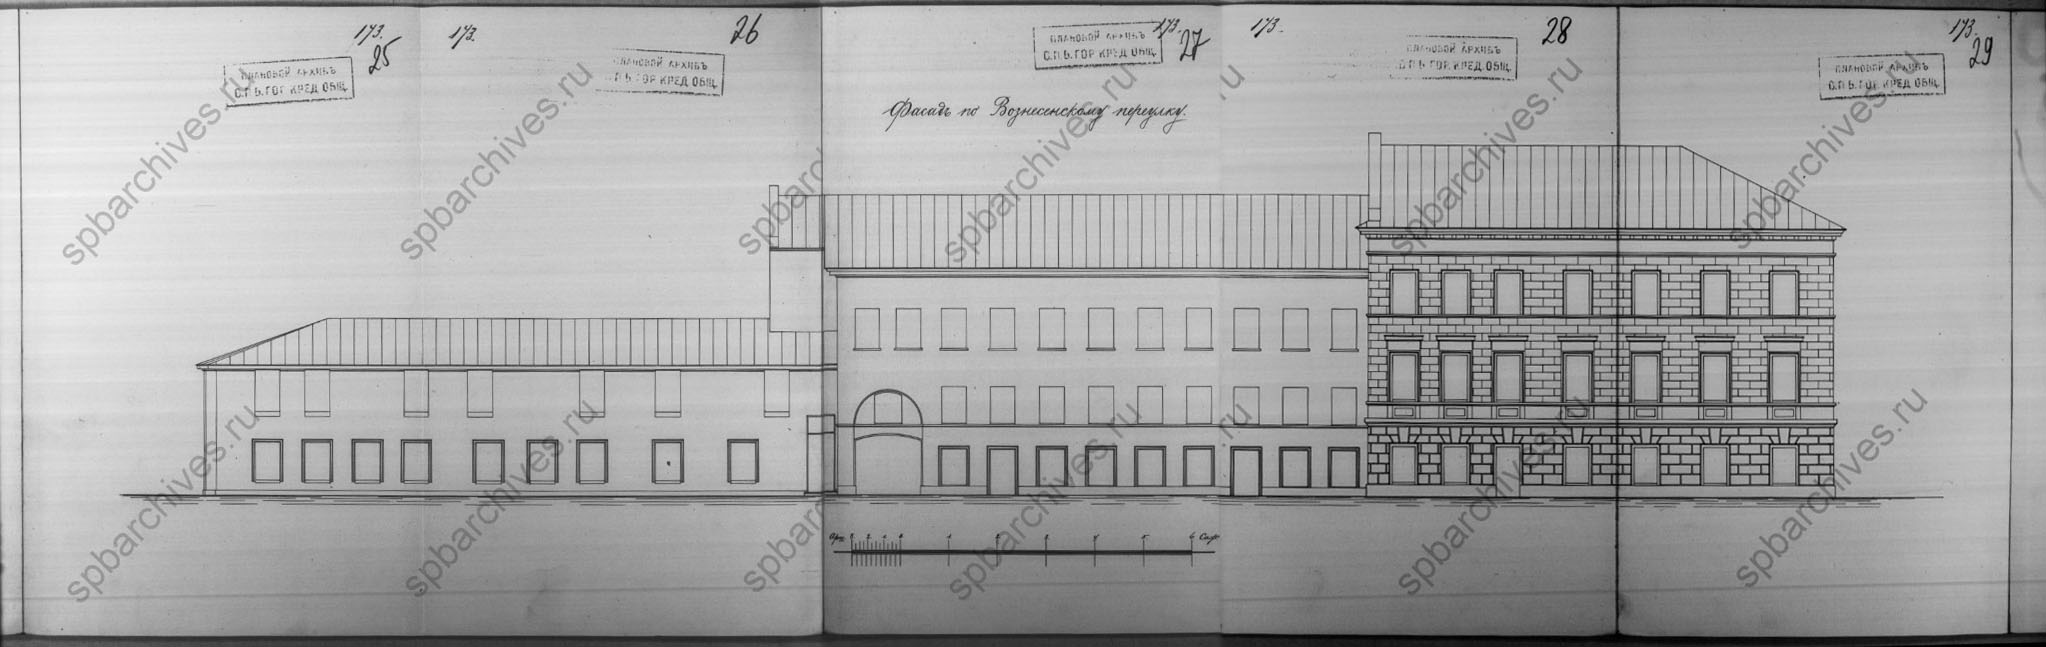 173.
25
173.
26
173.
27
173.
28
173.
29
ПЛАНОВОЙ АРХИВЪ
С.П.Б. ГОР. КРЕД. ОБЩ.
ПЛАНОВОЙ АРХИВЪ
С.П.Б. ГОР. КРЕД. ОБЩ.
ПЛАНОВОЙ АРХИВЪ
С.П.Б. ГОР. КРЕД. ОБЩ.
ПЛАНОВОЙ АРХИВЪ
С.П.Б. ГОР. КРЕД. ОБЩ.
ПЛАНОВОЙ АРХИВЪ
С.П.Б. ГОР. КРЕД. ОБЩ.
Фасадъ по Вознесенскому переулку.
Арш. 3 2 1 0 1 2 3 4 5 6 Саж.
spbarchives.ru
spbarchives.ru
spbarchives.ru
spbarchives.ru
spbarchives.ru
spbarchives.ru
spbarchives.ru
spbarchives.ru
spbarchives.ru
spbarchives.ru
spbarchives.ru
spbarchives.ru